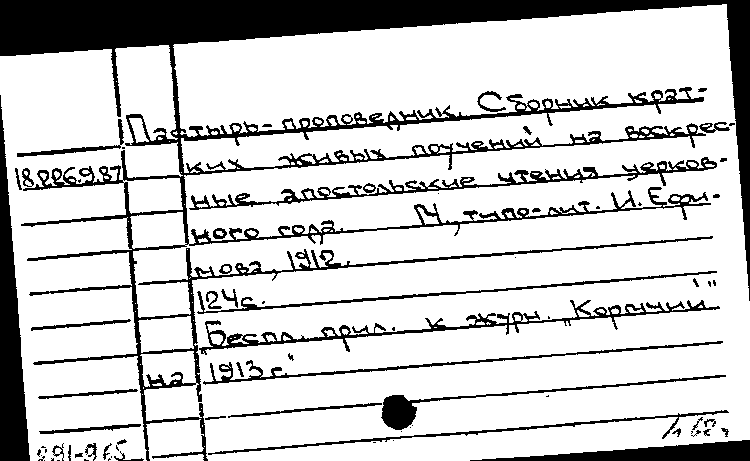 Пастырь-проповедник. Сборник крат-
18.226.9.87 ких живых поучений на воскрес-
ные апостольские чтения церков-
ного года. М., типо-лит. И. Ефи-
мова, 1912.
124с.
"Беспл. прил. к журн. „Кормчий"
на 1913 г."
891-965